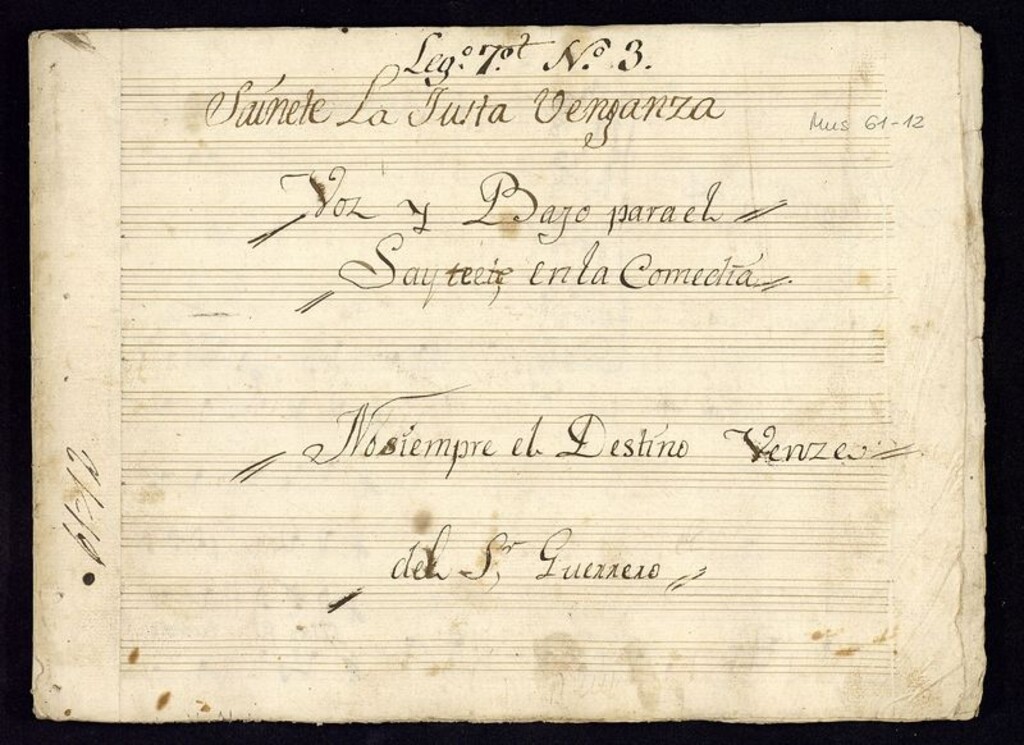 Leg.º 7.º N.º 3.
Sainete La Justa Venganza
Mus 61-12
Voz y Bajo para el
Say en la Comedia
No siempre el Destino Venze
del S.r Guerrero